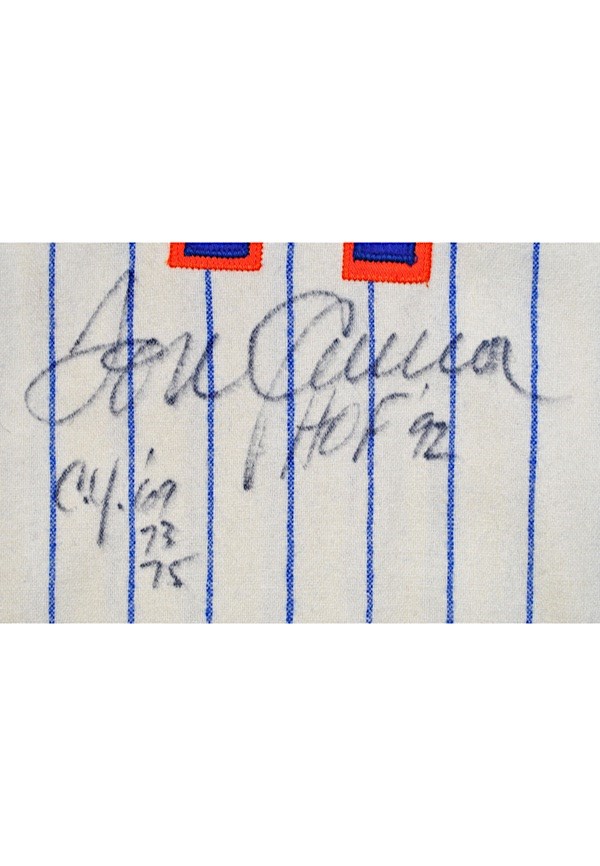 Tom Seaver
HOF '92
C.Y. '69
73
75